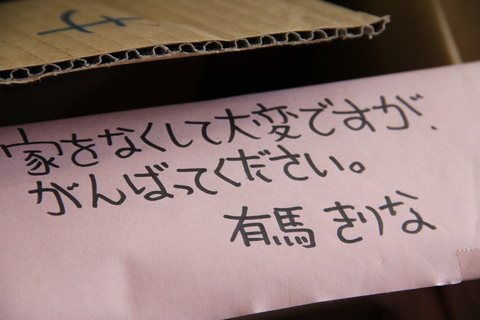 家をなくして大変ですが、
がんばってください。
有馬 きりな